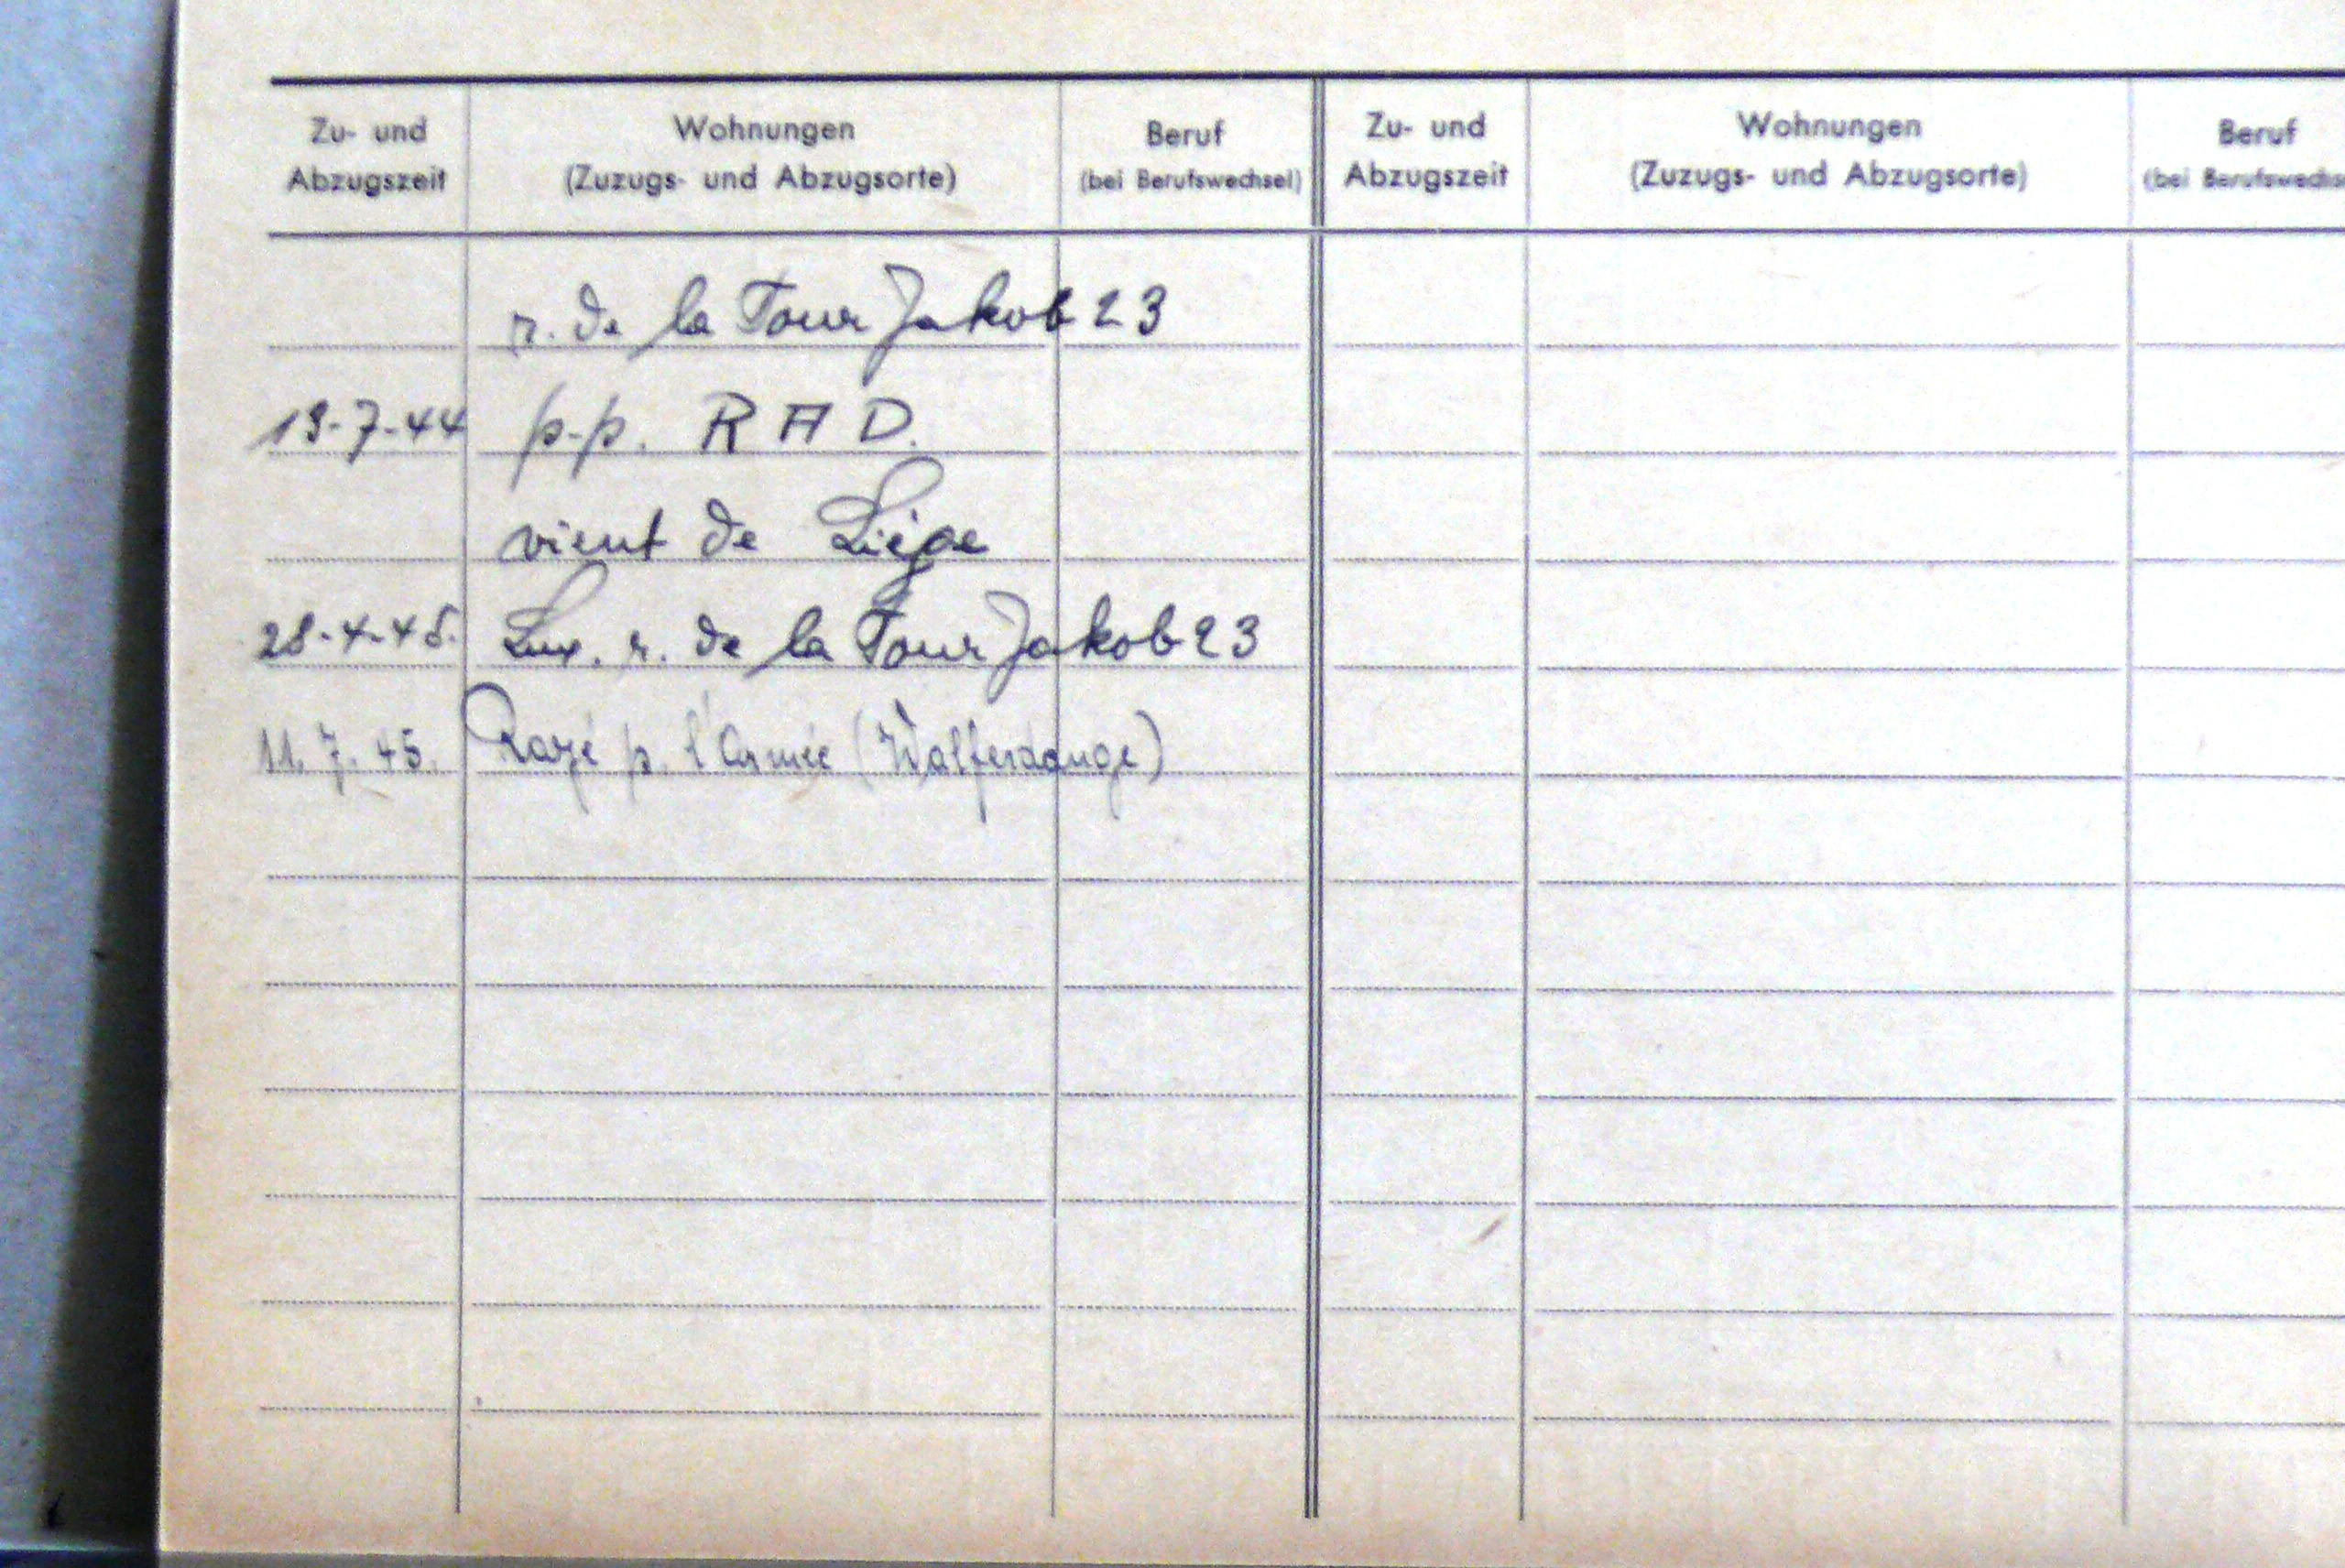 Zu- und Abzugszeit Wohnungen (Zuzugs- und Abzugsorte) Beruf (bei Berufswechsel) Zu- und Abzugszeit Wohnungen (Zuzugs- und Abzugsorte) Beruf (bei Berufswechse
r. de la Tour Jakob 23
19-7-44 p-p. R A D.
vient de Liége
28-4-45. Lux. r. de la Tour Jakob 23
11. 7. 45. Rayé p. l'Armée (Walferdange)